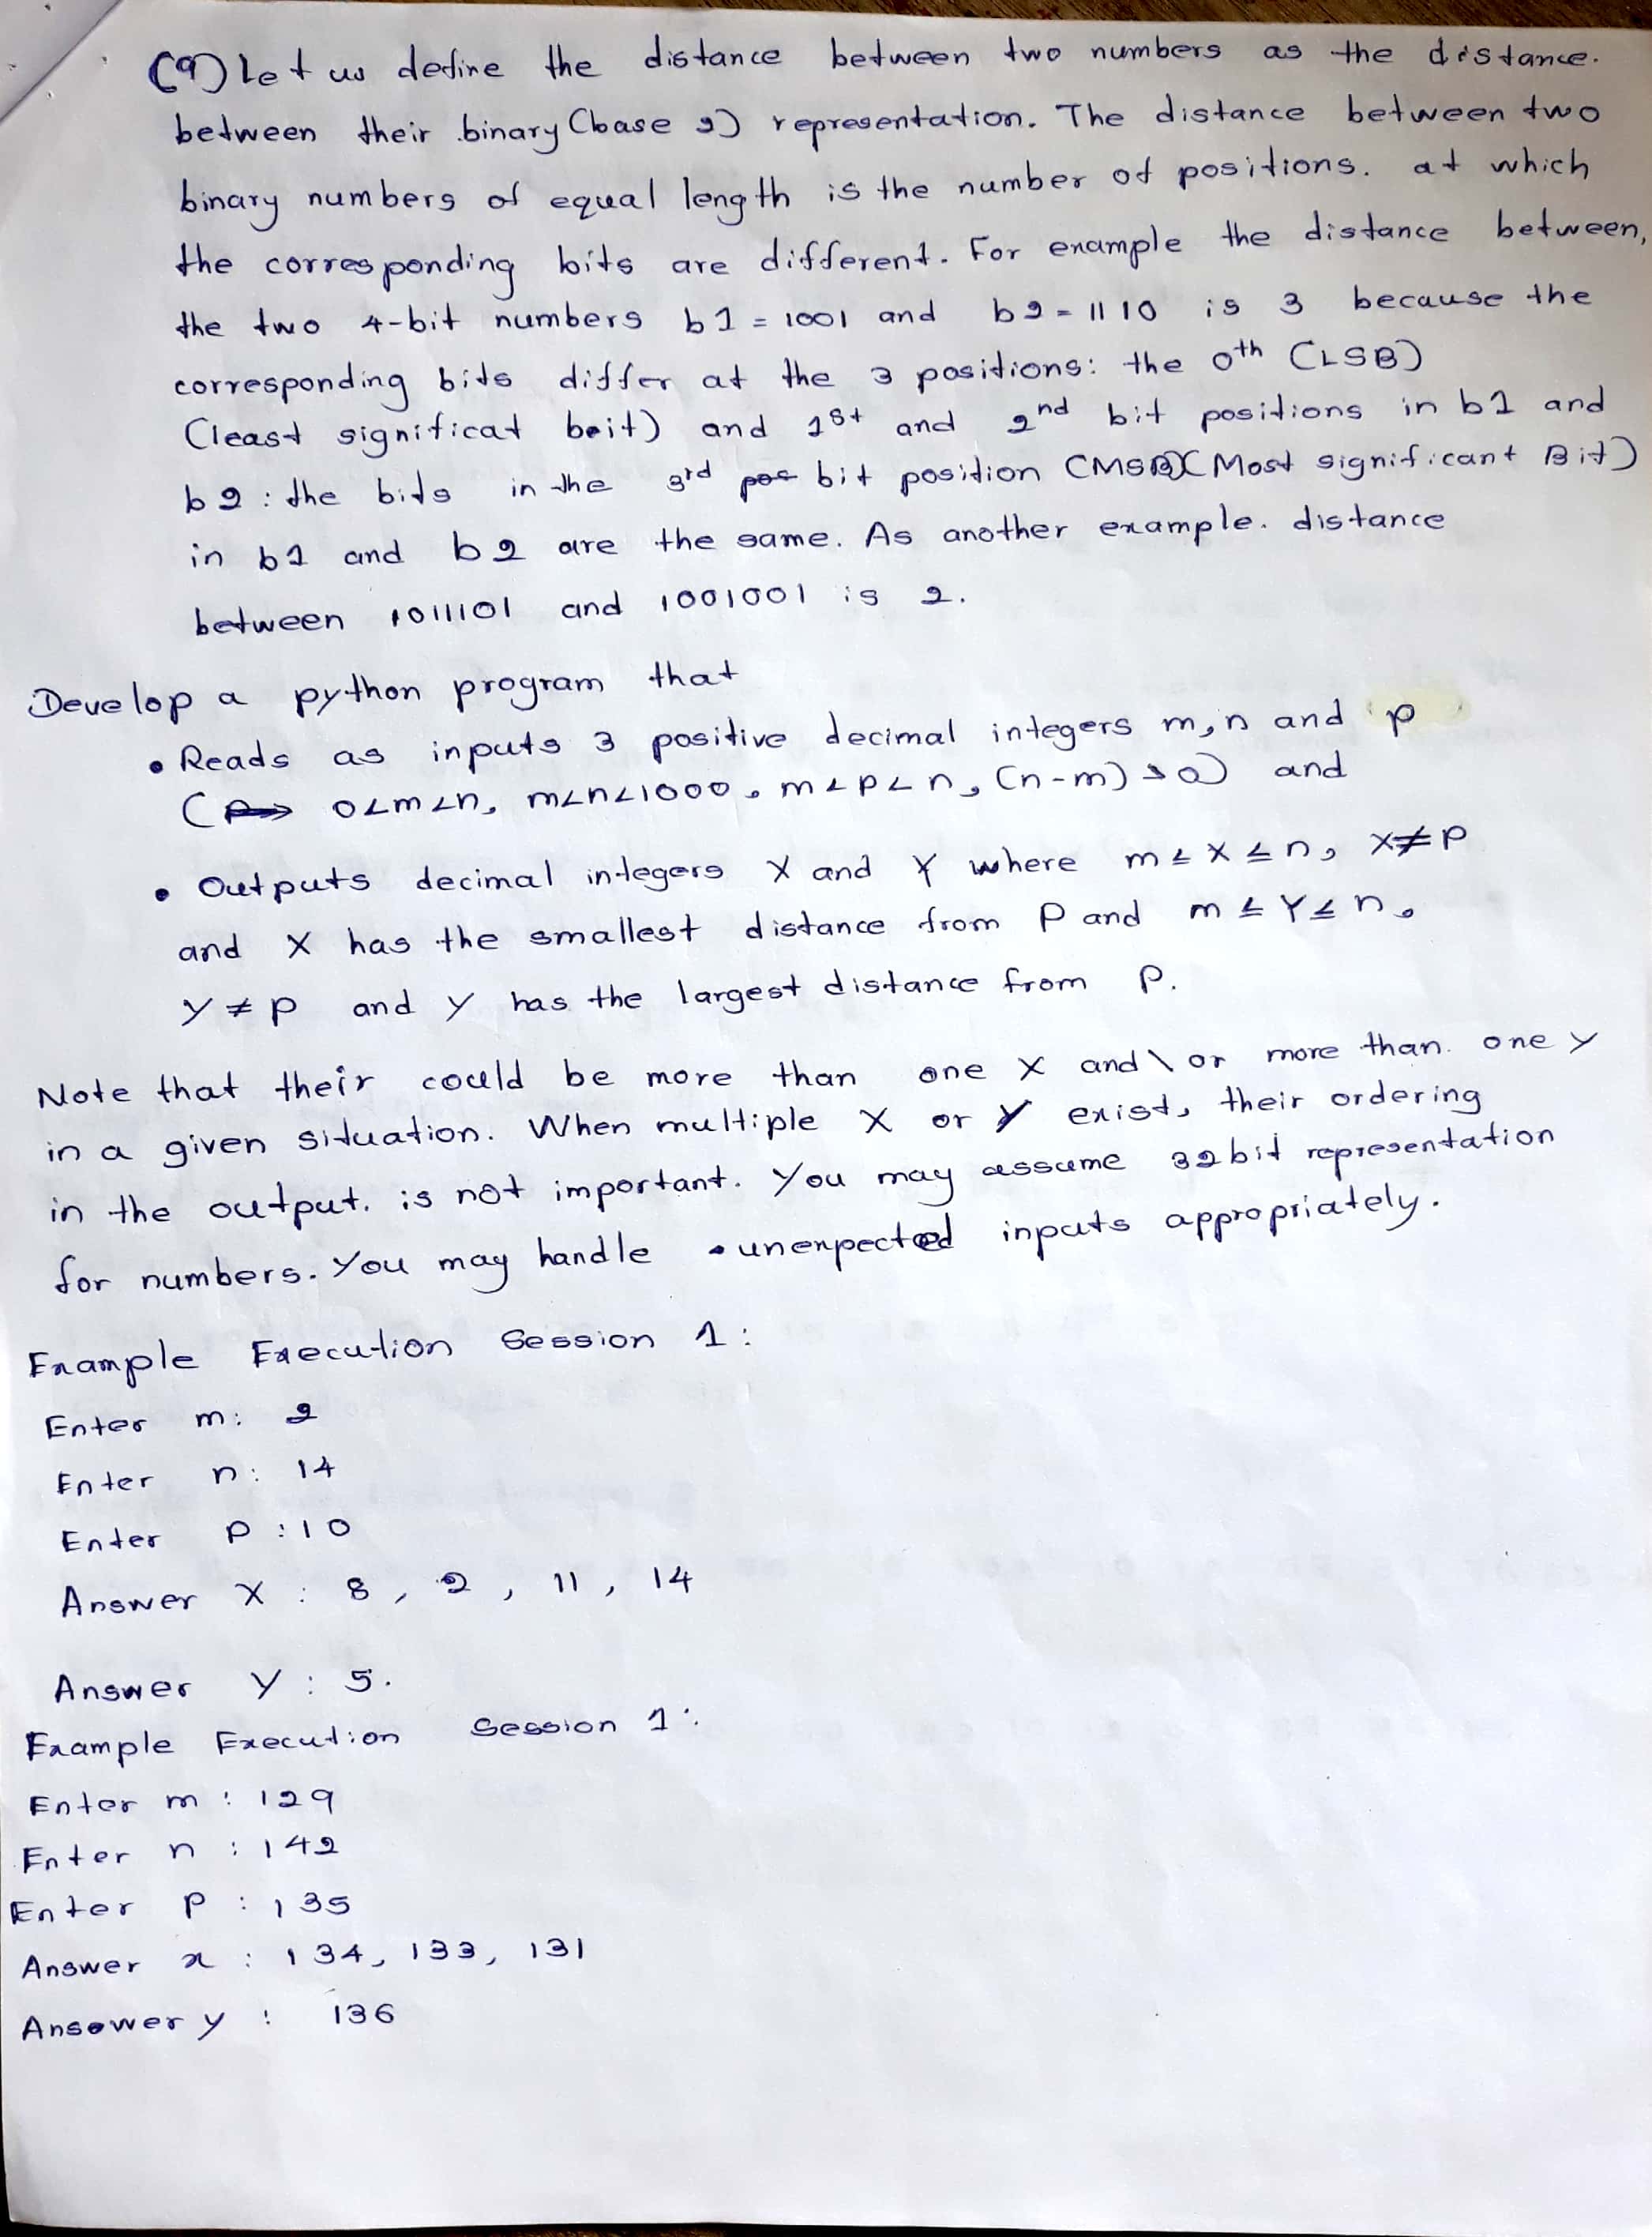 (9) Let us define the distance between two numbers as the distance.
between their binary (base 2) representation. The distance between two
binary numbers of equal length is the number of positions. at which
the corresponding bits are different. For example the distance between,
the two 4-bit numbers b1 = 1001 and b2 = 1110 is 3 because the
corresponding bits differ at the 3 positions: the 0th (LSB)
(least significat beit) and 1st and 2nd bit positions in b1 and
b2 : the bits in the 3rd pos bit position (MSB)(Most significant Bit)
in b1 and b2 are the same. As another example. distance
between 1011101 and 1001001 is 2.
Develop a python program that
• Reads as inputs 3 positive decimal integers m, n and p
( 0<m<n, m<n<1000, m<p<n, (n-m) > 2) and
• Outputs decimal integers X and Y where m ≤ X ≤ n, X≠P
and X has the smallest distance from P and m ≤ Y ≤ n.
Y ≠ P and y has the largest distance from P.
Note that their could be more than one X and \ or more than. one y
in a given situation. When multiple X or Y exist, their ordering
in the output. is not important. You may assume 32bit representation
for numbers. You may handle unexpected inputs appropriately.
Example Execution Session 1 :
Enter m: 2
Enter n: 14
Enter P : 10
Answer X : 8, 2, 11, 14
Answer Y : 5.
Example Execution Session 1 :
Enter m : 129
Enter n : 142
Enter P : 135
Answer x : 134, 133, 131
Answer y : 136